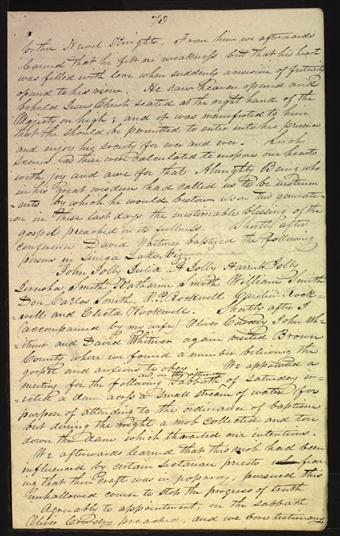 43
brother Newel Knight. From him we afterwards
learned that he felt no weakness but that his heart
was filled with love when suddenly a vision of futurity
opened to his view. He saw heaven opened and
beheld Jesus Christ seated at the right hand of the
Majesty on high; and it was manifested to him
that he should be permitted to enter into his presence
and enjoy his society for ever and ever. Such
scenes as these were calculated to enspire our hearts
with joy and awe for that Almighty Being who
in his great wisdom had called us to be instrum
-ents by which he would bestow upon this generat-
ion in these last days the inestimable blessing of the
gospel preached in its fullness. Shortly after
conference David Whitmer baptized the following
persons in Seneca Lake, Viz:
John Jolly Julia A Jolly Harriet Jolly
Jerusha Smith Katharine Smith William Smith
Don Carlos Smith, Rockwell Caroline Rock-
-well and Electa Rockwell. Shortly after I
(accompanied by my wife) Oliver Cowdery John Wh-
itmer and David Whitmer again visited Broom
County where we found a number believing the
gospel and anxious to obey. We appointed a
meeting for the following Sabbath on Saturday
a dam across a small stream of water for
purpose of attending to the ordinance of baptism
but during the night a mob collected and tore
down the dam which thwarted our intentions.
We afterwards learned that this mob had been
influenced by certain sectarian priests fear
ing that their craft was in jeopardy, pursued this
unhallowed course to stop the progress of truth
Agreeably to appointment, on the sabbath
Oliver Cowdery preached, and we bore testimony